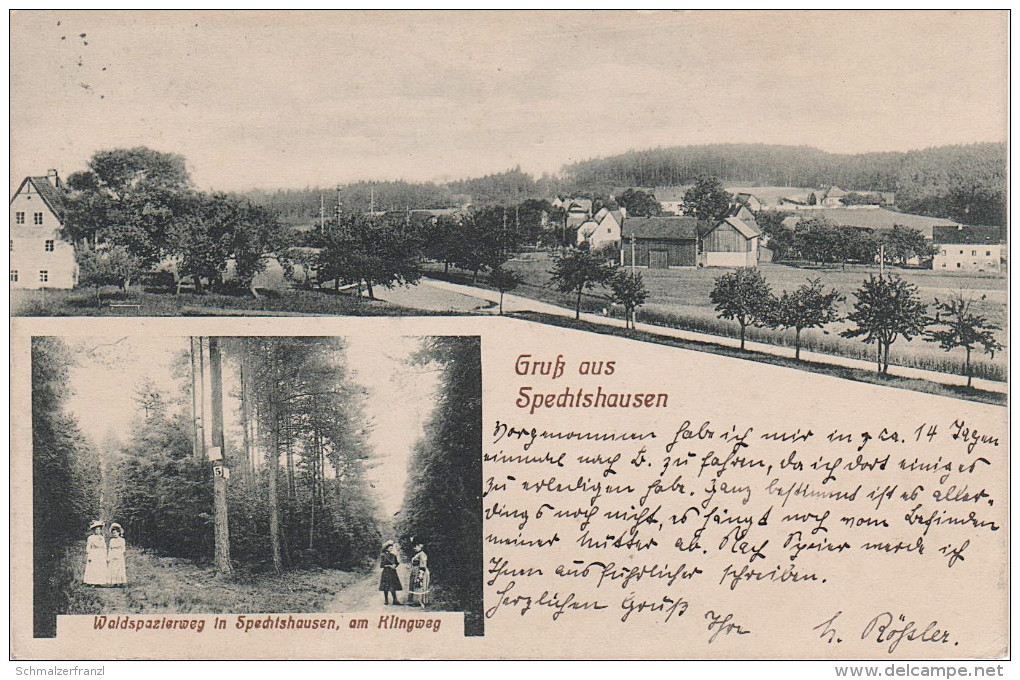 Gruß aus
Spechtshausen
Vorgenommen habe ich mir in ca. 14 Tagen
einmal nach D. zu fahren, da ich dort einiges
zu erledigen habe. Ganz bestimmt ist es aller-
dings noch nicht, es hängt noch vom Befinden
meiner Mutter ab. Nach Speier werde ich
Ihnen ausführlicher schreiben.
Herzlichen Gruß Ihr
H. Rößler.
5
Waldspazierweg in Spechtshausen, am Klingweg
Schmalzerfranzl
www.delcampe.net